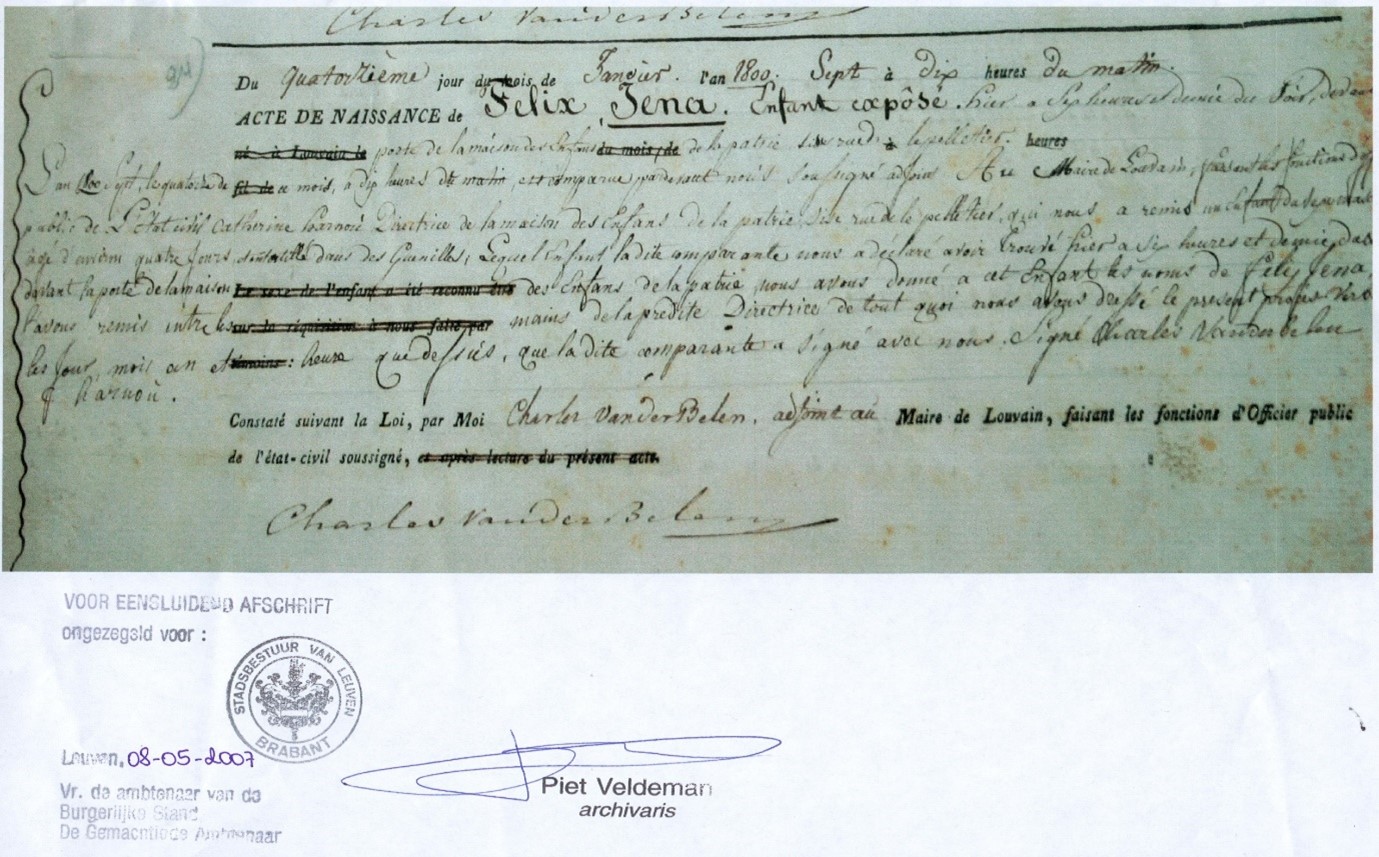 Charles VanderBelen
94)
Du quatorzième jour du mois de Janvier. l'an 1800. Sept à dix heures du matin.
ACTE DE NAISSANCE de Felix, Jena. Enfant expôsé. hier a six heures et demie du Soir, devant
né à Louvain le porte de la maison des Enfans du mois, de de la patrie sise rue de le pelletier. heures
L'an 1800 Sept, le quatorze de fil de ce mois, à dix heures du matin, est comparue pardevant nous soussigné adjoint Au Maire de Louvain, faisant les fonctions d'off
public de L'Etat civil Catherine Harnou Directrice de la maison des Enfans de la patrie Sise rue de le pelletier, qui nous a remis un Enfant du sexe masc
âgé d'environ quatre jours dans des Guenilles, Lequel Enfant la dite comparante nous a déclaré avoir Trouvé hier a Six heures et demie
davant la porte de la maison Le sexe de l'enfant a été reconnu être des Enfans de la patrie, nous avons donné a cet Enfant les noms de Felix Jena,
l'avons remis entre les sur la réquisition à nous faite par mains de la predite Directrice de tout quoi nous avons dressé le present procès Verb
les Jour, mois an et témoins : heure que dessus, que la dite comparante a signé avec nous. Signé Charles Vanderbelen
Harnou.
Constaté suivant la Loi, par Moi Charles VanderBelen, adjoint au Maire de Louvain, faisant les fonctions d'Officier public
de l'état-civil soussigné, et après lecture du présent acte.
Charles VanderBelen
VOOR EENSLUIDEND AFSCHRIFT
ongezegeld voor :
STADSBESTUUR VAN LEUVEN
BRABANT
Leuven, 08-05-2007
Vr. de ambtenaar van de
Burgerlijke Stand
De Gemachtigde Ambtenaar
Piet Veldeman
archivaris